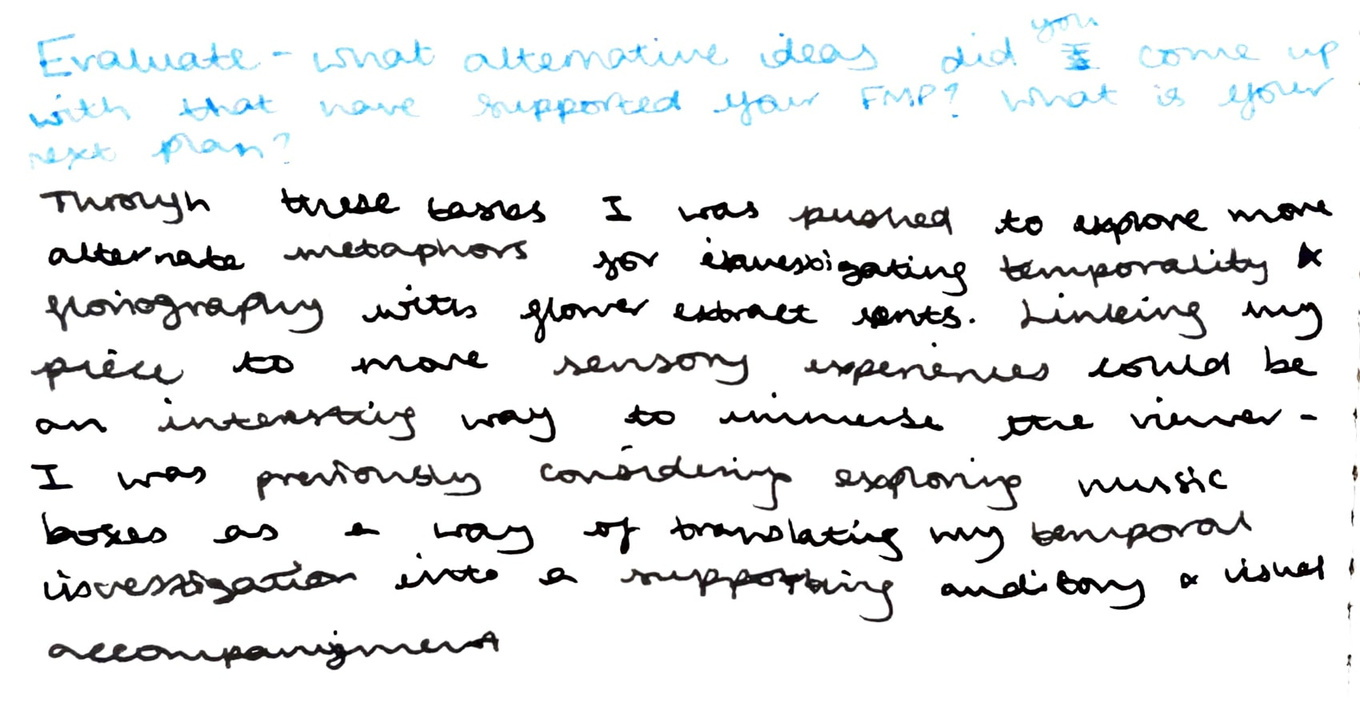 Evaluate - what alternative ideas did you come up
with that have supported your FMP? What is your
next plan?
Through these tasks I was pushed to explore more
alternate metaphors for investigating temporality &
floriography with flower extract sents. Linking my
piece to more sensory experiences could be
an interesting way to immerse the viewer -
I was previously considering exploring music
boxes as a way of translating my temporal
investigation into a supporting auditory & visual
accompanyment